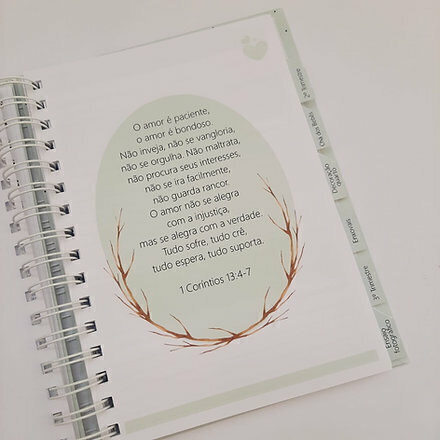 O amor é paciente,
o amor é bondoso.
Não inveja, não se vangloria,
não se orgulha. Não maltrata,
não procura seus interesses,
não se ira facilmente,
não guarda rancor.
O amor não se alegra
com a injustiça,
mas se alegra com a verdade.
Tudo sofre, tudo crê,
tudo espera, tudo suporta.
1 Coríntios 13:4-7
2º Trimestre
Chá de Bebê
Decoração
quarto
Enxovais
3º Trimestre
Ensaio
fotográfico